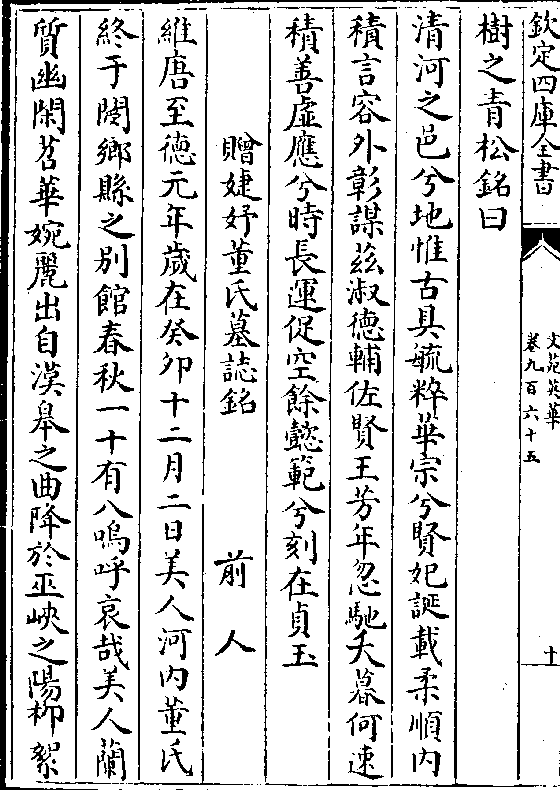 欽定四庫全書
文苑英華
卷九百六十五
十
樹之青松銘曰
清河之邑兮地惟古具毓粹華宗兮賢妃誕載柔順内
積言容外彰謀茲淑德輔佐賢王芳年忽馳夭暮何速
積善虛應兮時長運促空餘懿範兮刻在貞玉
贈婕妤董氏墓誌銘 前人
維唐至德元年歲在癸卯十二月二日美人河内董氏
終于閿鄉縣之别館春秋一十有八嗚呼哀哉美人蘭
質幽閑苕華婉麗出自漢皋之曲降於巫峽之陽柳絮